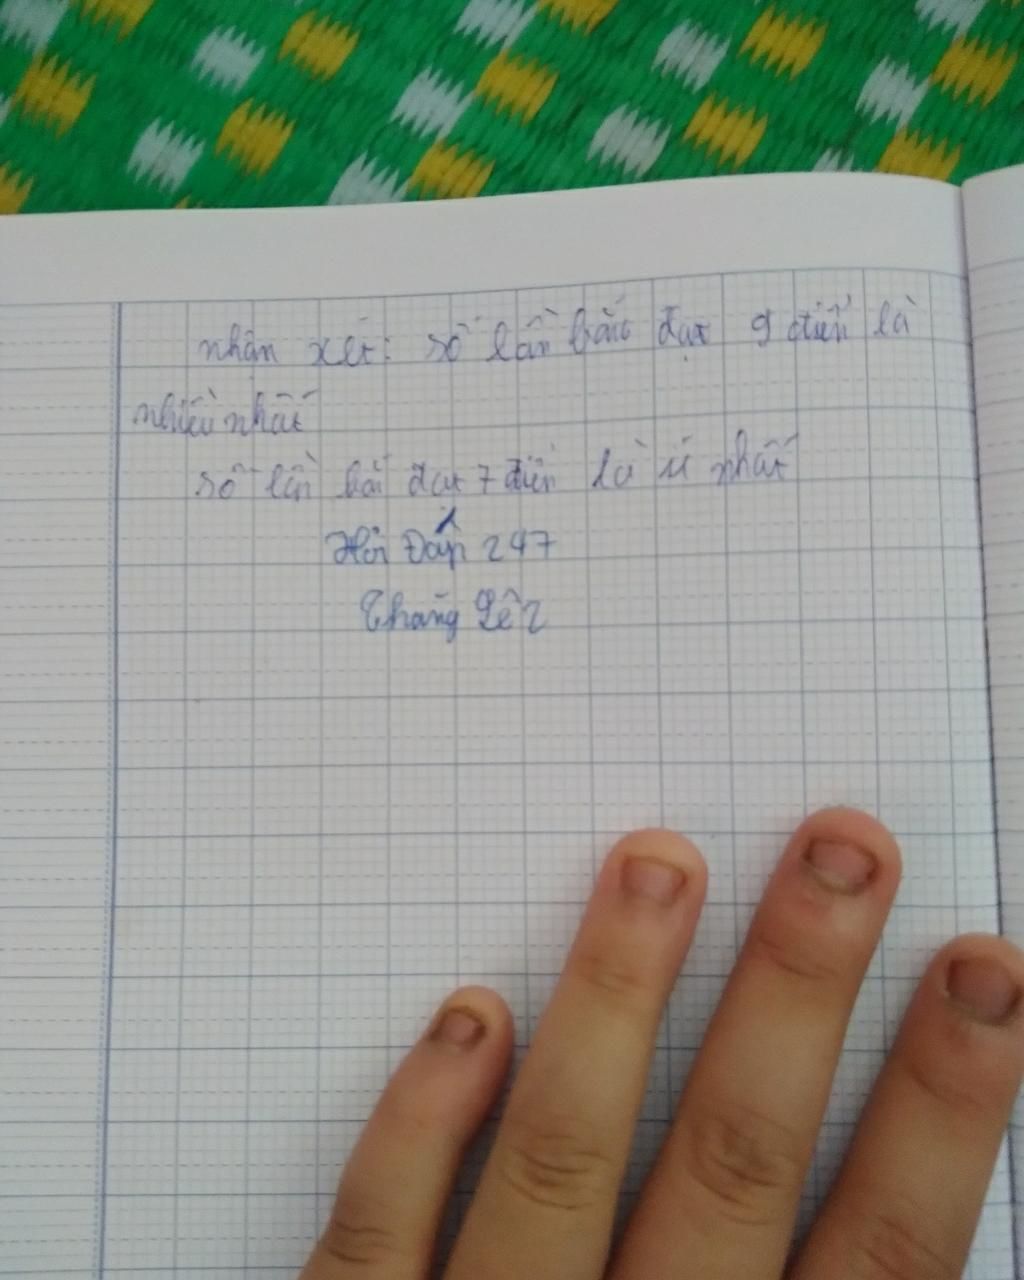 nhận xét: số lần bắn đạt 9 điểm là
nhiều nhất
số lần bắn đạt 7 điểm là ít nhất
Hỏi Đáp 247